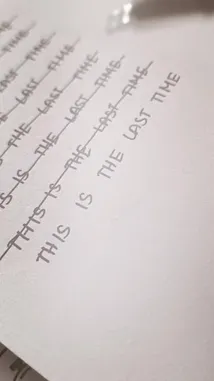 TIME
LAST TIME
LAST TIME
THE LAST TIME
IS THE LAST TIME
THIS IS THE LAST TIME
THIS IS THE LAST TIME